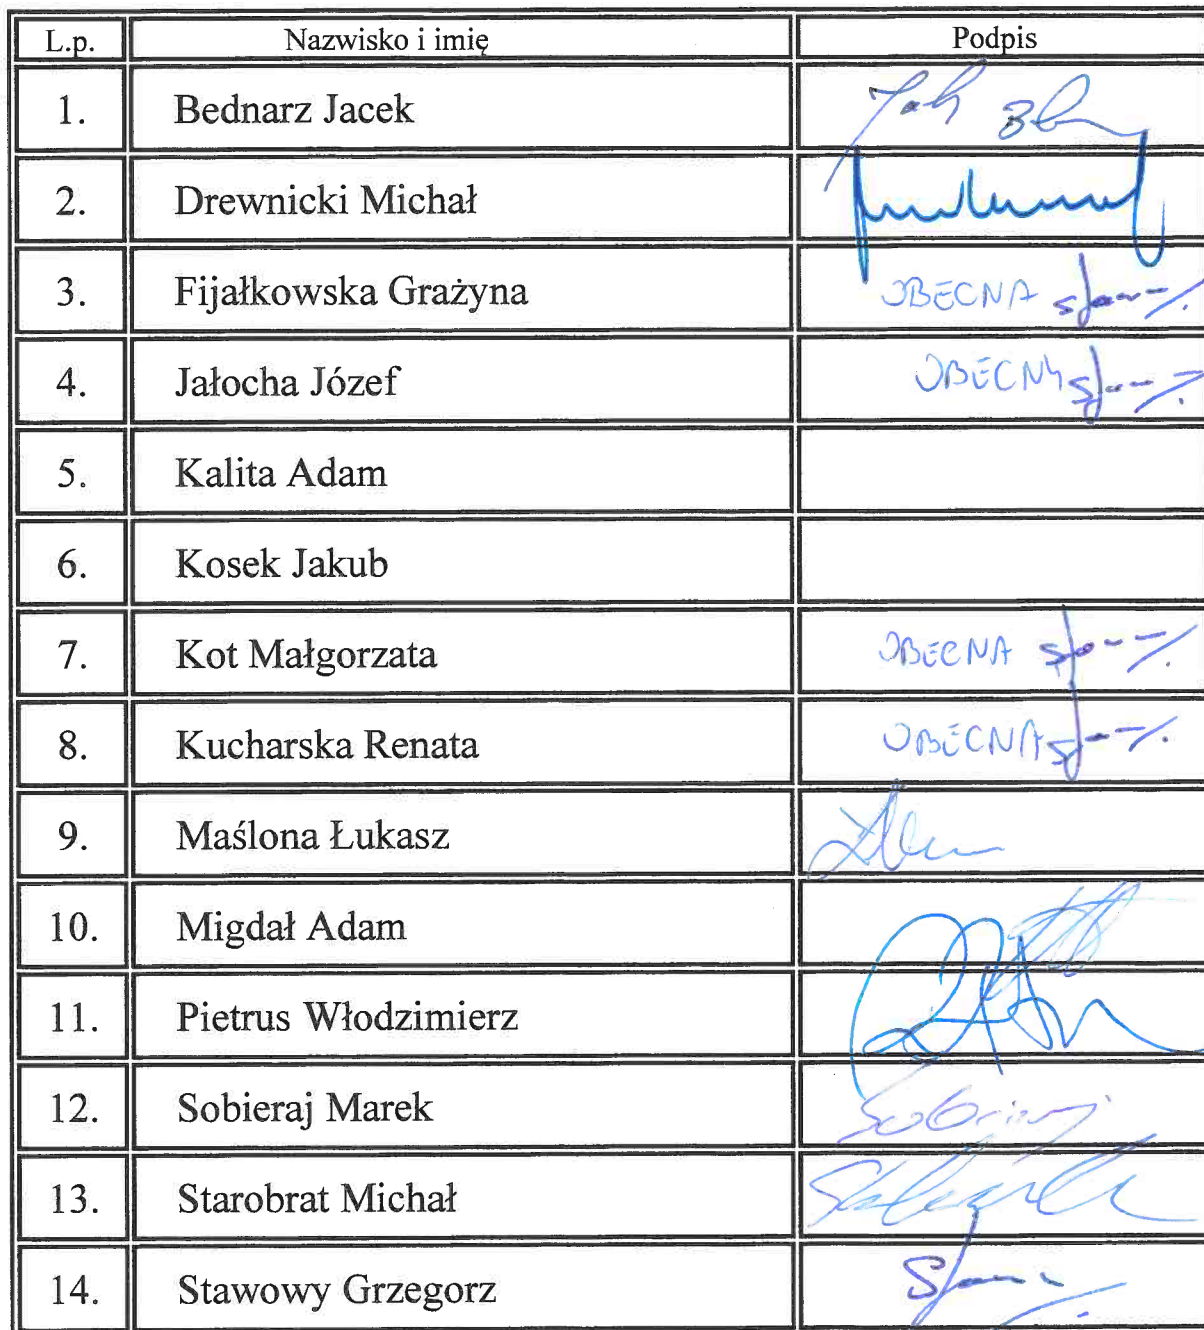 L.p. Nazwisko i imię Podpis
1. Bednarz Jacek
2. Drewnicki Michał
3. Fijałkowska Grażyna OBECNA
4. Jałocha Józef OBECNY
5. Kalita Adam
6. Kosek Jakub
7. Kot Małgorzata OBECNA
8. Kucharska Renata OBECNA
9. Maślona Łukasz
10. Migdał Adam
11. Pietrus Włodzimierz
12. Sobieraj Marek
13. Starobrat Michał
14. Stawowy Grzegorz